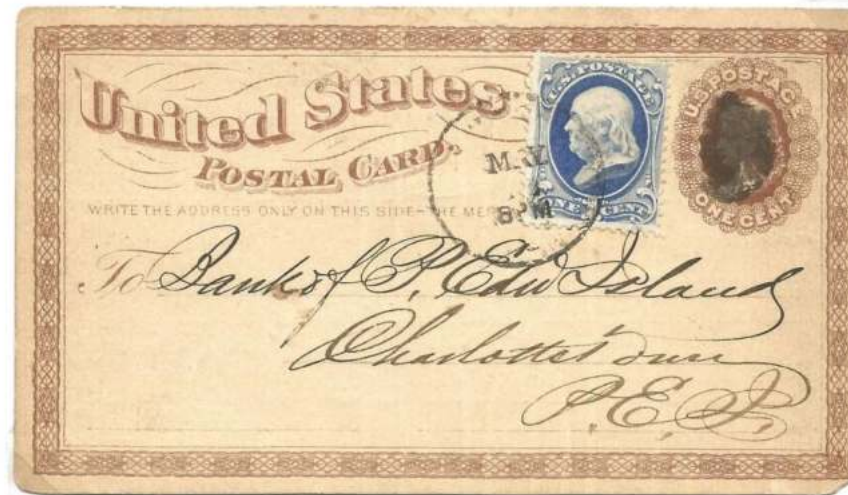 United States
POSTAL CARD.
WRITE THE ADDRESS ONLY ON THIS SIDE - THE
U.S. POSTAGE
ONE CENT
U.S. POSTAGE
ONE CENT
MY
8PM
To Bank of P. Edw Island
Charlottetown
P.E.I.